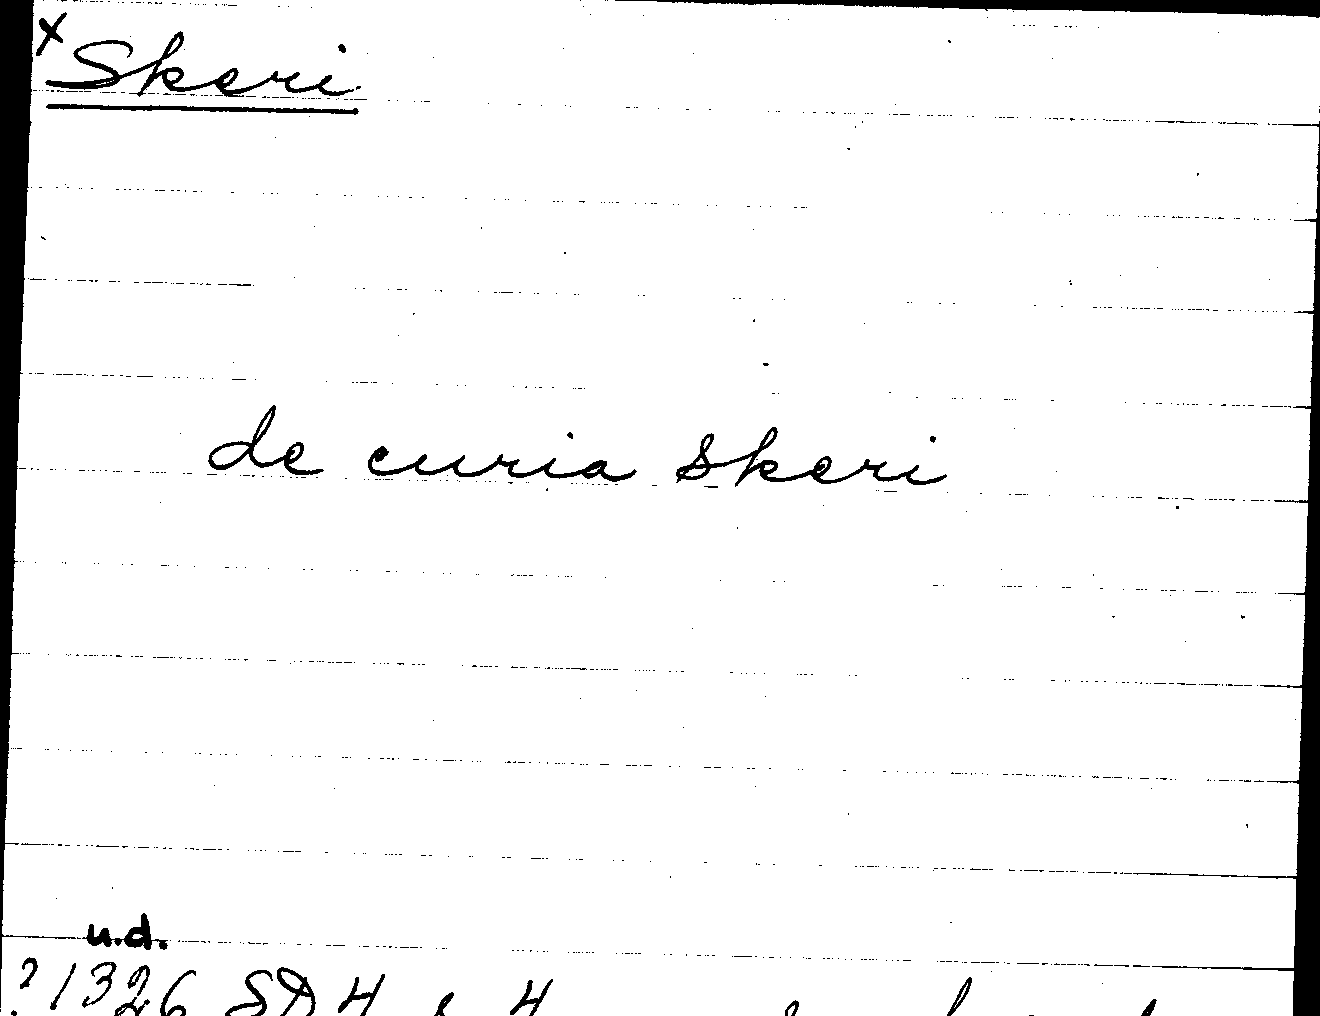 x Skeri
de curia skeri
u.d.
? 1326 SD 4